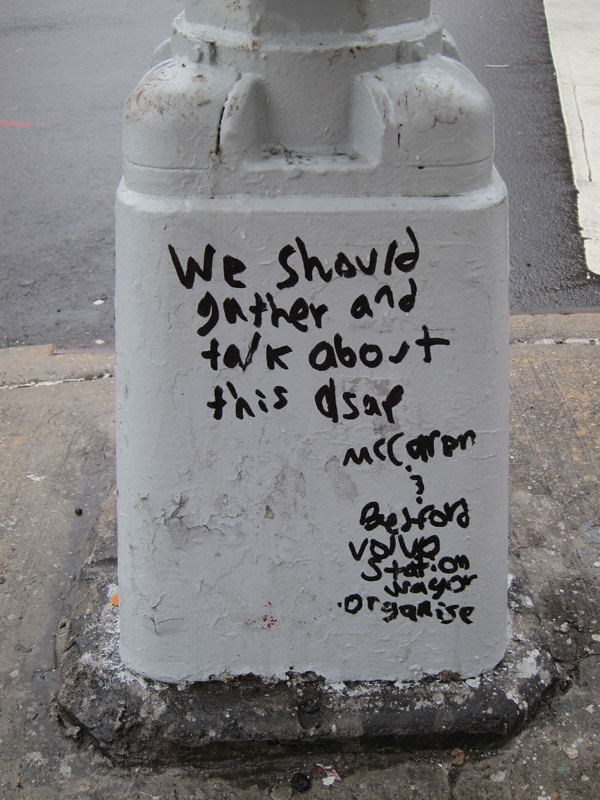 We should
gather and
talk about
this dsap
McCaren
?
Bedford
volvo
Station
wagor
organise